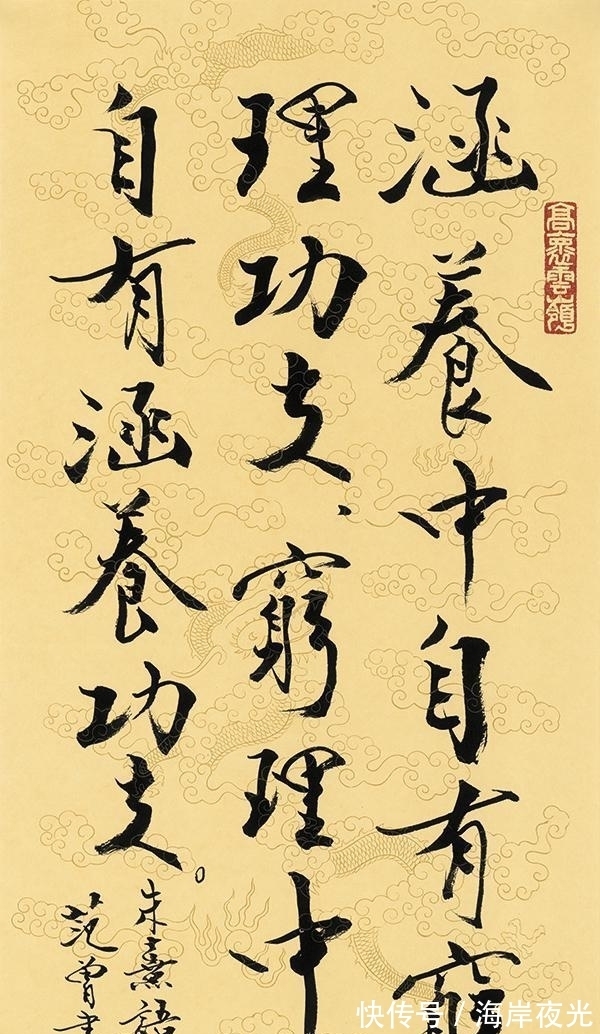 涵養中自有窮
理功夫、窮理中
自有涵養功夫。
朱熹語
范曾書
快传号 / 海岸夜光